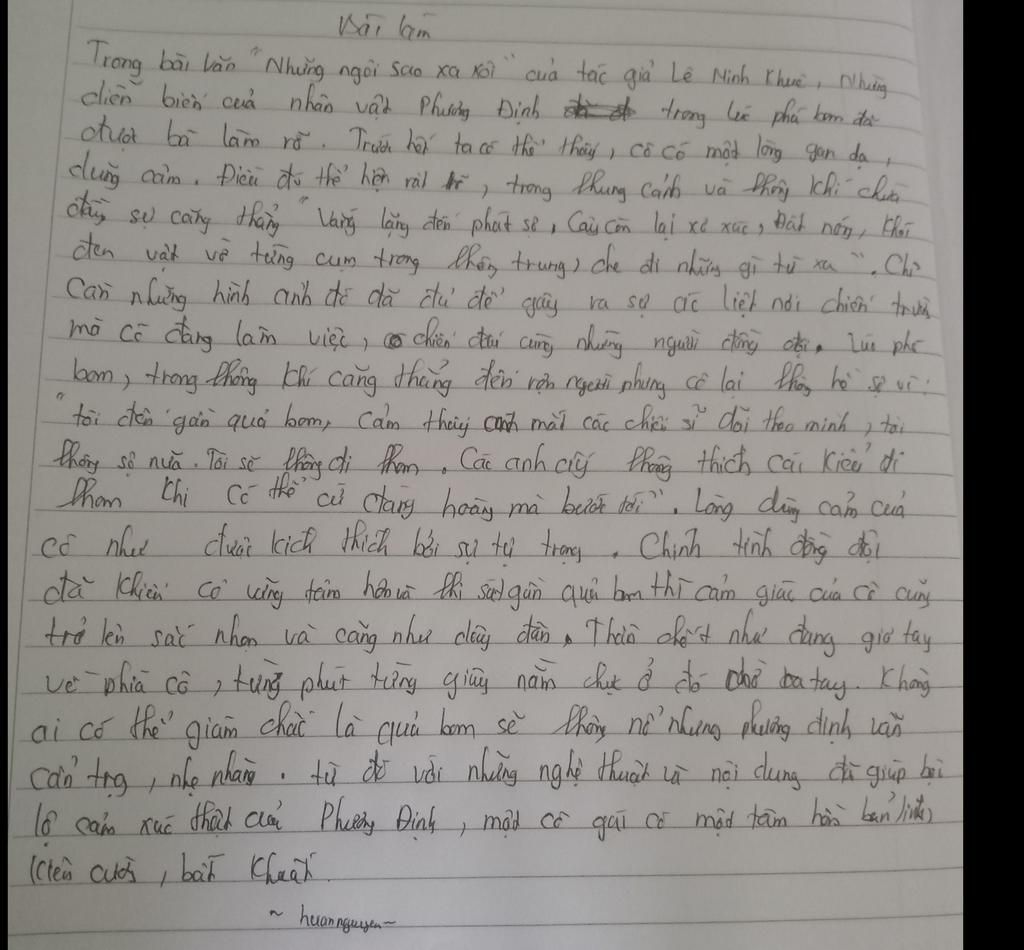 Bài làm
Trong bài văn "Những ngôi sao xa xôi" của tác giả Lê Minh Khuê, Những
diễn biến của nhân vật Phương Định trong lúc phá bom đã
được bà làm rõ. Trước hết ta có thể thấy, cô có một lòng gan dạ,
dũng cảm. Điều đó thể hiện rất rõ, trong khung cảnh và không khí chứa
đầy sự căng thẳng "Vắng lặng đến phát sợ, Cây còn lại xơ xác, Đất nóng, khói
đen vật vờ từng cụm trong không trung, che đi những gì từ xa". Chỉ
Cần những hình ảnh đó đã đủ để gây ra sự ác liệt nơi chiến trường
mà cô đang làm việc, chiến đấu cùng những người đồng đội. Lúc phá
bom, trong không khí căng thẳng đến rợn người nhưng cô lại không hề sợ vì:
"tôi đến gần quả bom, Cảm thấy mắt các chiến sĩ dõi theo mình, tôi
không sợ nữa. Tôi sẽ không đi khom. Các anh ấy không thích cái kiểu đi
khom khi có thể cứ đàng hoàng mà bước tới". Lòng dũng cảm của
cô như được kích thích bởi sự tự trọng. Chính tình đồng đội
đã khiến cô vững tâm hơn và khi sát gần quả bom thì cảm giác của cô cũng
trở lên sắc nhọn và căng như dây đàn. Thần chết như đang giơ tay
về phía cô, từng phút từng giây nằm chực ở đó chờ ba tay. Không
ai có thể giám chắc là quả bom sẽ không nổ nhưng phương định vẫn
cẩn trọng, nhẹ nhàng. từ đó với những nghệ thuật và nội dung đã giúp bộc
lộ cảm xúc thật của Phương Định, một cô gái có một tâm hồn bản lĩnh,
kiên cường, bất khuất.
~ huannguyen ~